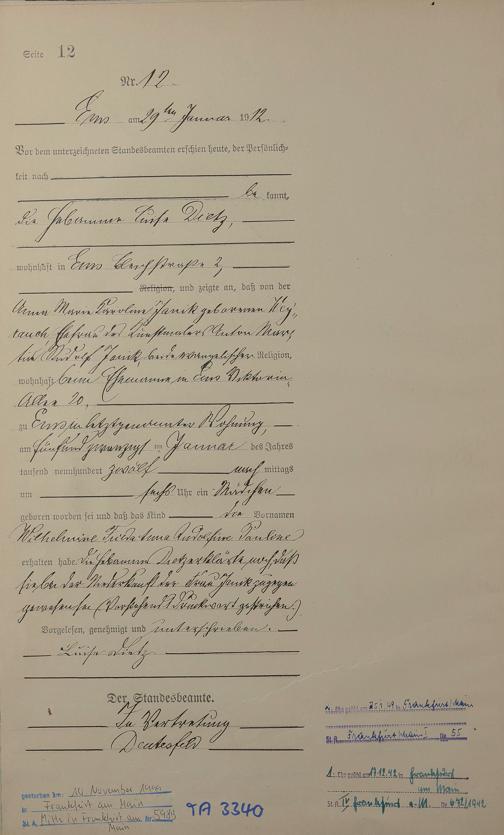 Seite 12
Nr. 12
Ems am 29ten Januar 1912.
Vor dem unterzeichneten Standesbeamten erschien heute, der Persönlich-
keit nach
be kannt,
die Hebamme Luise Dietz,
wohnhaft in Ems Bleichstraße 2,
Religion, und zeigte an, daß von der
Anna Marie Karoline Janik geborenen Wey-
rauch Ehefrau des Kunstmalers Anton Mar-
tin Rudolf Janik, beide evangelischer Religion,
wohnhaft beim Ehemanne, in Ems Viktoria
Allee 20,
zu Ems in letztgenannter Wohnung,
am fünfundzwanzigsten Januar des Jahres
tausend neunhundert zwölf nach mittags
um sechs Uhr ein Mädchen
geboren worden sei und daß das Kind die Vornamen
Wilhelmine Rudolfine Pauline
erhalten habe. Die Hebamme Dietz erklärte noch daß
sie bei der Niederkunft der Frau Janik zugegen
gewesen sei. (Vorstehend 1 Druckwort gestrichen.)
Vorgelesen, genehmigt und unterschrieben.
Luise Dietz
Der Standesbeamte.
In Vertretung
gestorben am: 14 November
in Frankfurt am Main
St. A. Mitte in Frankfurt am Nr. 5983
Main
TA 3340
25.1.49 in Frankfurt/Main
St. A. Frankfurt Main I Nr. 55
1. Ehe geschl. am 17.12.42 in Frankfurt
am Main
St. A. IV Frankfurt a. M. Nr. 672/1942